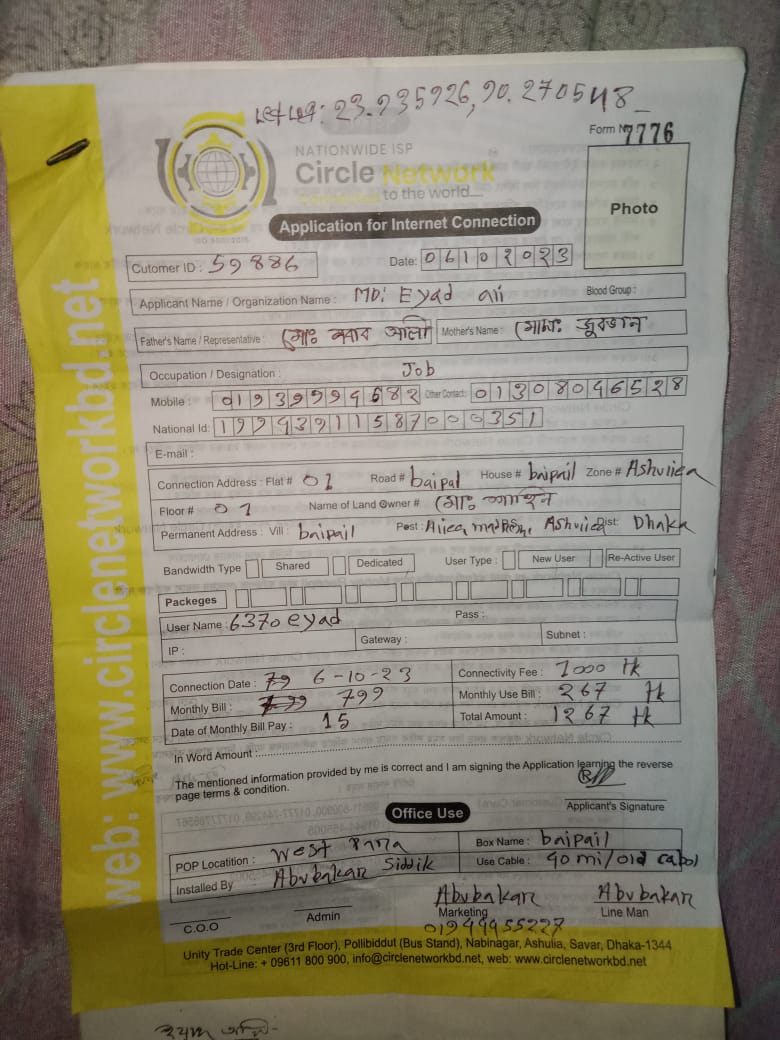 23.935926, 90.270548
Form No 7776
NATIONWIDE ISP
Circle Network
to the world....
ISO 9001:2015
Photo
Application for Internet Connection
Cutomer ID : 59886 Date: 06102023
Applicant Name / Organization Name : MD: Eyad ali Blood Group :
Father's Name / Representative : মোঃ নবাব আলী Mother's Name : মোসাঃ
Occupation / Designation : Job
Mobile : Other Contact :
National Id:
E-mail :
Connection Address : Flat # 01 Road # baipal House # baipail Zone # Ashuliea
Floor # 01 Name of Land Owner # মোঃ
Permanent Address : Vill : baipail Post : Dist: Dhaka
Bandwidth Type Shared Dedicated User Type : New User Re-Active User
Packeges
User Name : 6370eyad Pass :
IP : Gateway : Subnet :
Connection Date : 6-10-23 Connectivity Fee : 1000 tk
Monthly Bill : 799 Monthly Use Bill : 267 tk
Date of Monthly Bill Pay : 15 Total Amount : 1267 tk
In Word Amount :
The mentioned information provided by me is correct and I am signing the Application learning the reverse
page terms & condition.
Applicant's Signature
Office Use
POP Locatition : West Para Box Name : baipail
Installed By Abubakar Siddik Use Cable : 90 mi/old cabol
Abubakar Abubakar
C.O.O Admin Marketing Line Man
Unity Trade Center (3rd Floor), Pollibiddut (Bus Stand), Nabinagar, Ashulia, Savar, Dhaka-1344
Hot-Line: + 09611 800 900, info@circlenetworkbd.net, web: www.circlenetworkbd.net
web: www.circlenetworkbd.net